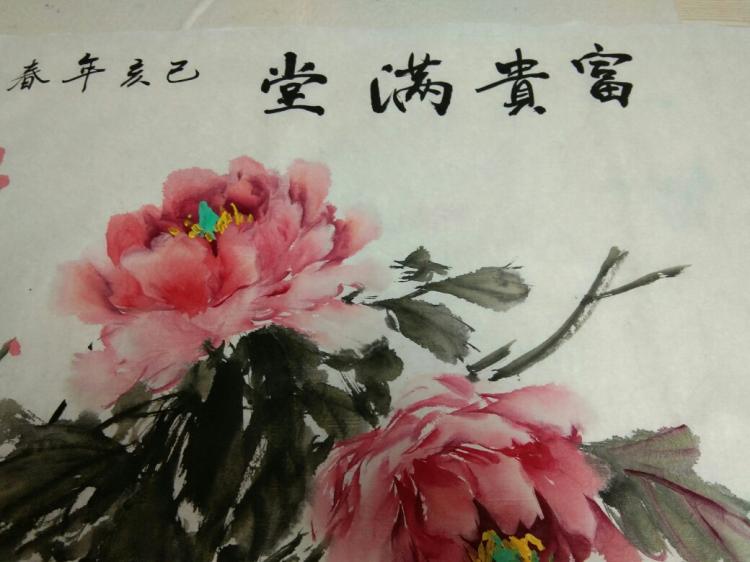 富貴满堂
己亥年春